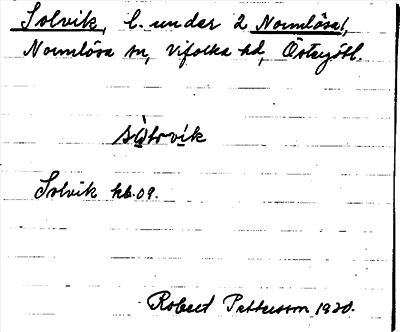 Solvik, l. under 2 Normlösa,
Normlösa sn, Vifolka hd, Östergötl.
Solvik hb. 09.
Robert Pettersson 1930.